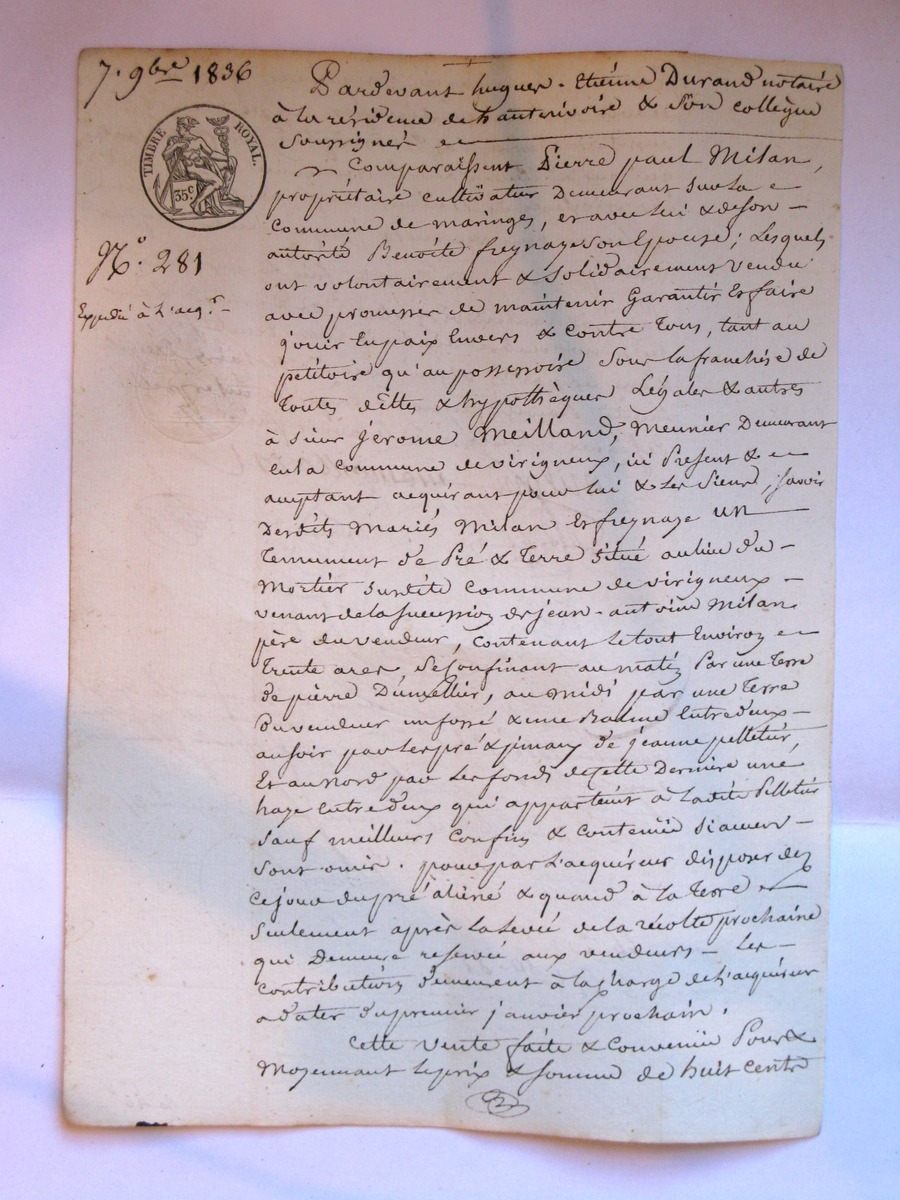 7. 9bre 1836
TIMBRE ROYAL.
35c
No. 281
Expédié à l'acqr
Pardevant hugues-Etienne Durand notaire
à la résidence de hauterivoire & son collegue
soussignés
Comparaissent Pierre paul Milan,
propriétaire cultivateur Demeurant sur la
Commune de maringes, et avec lui & de son
autorité Benoite freynaze son Epouse; Lesquels
ont volontairement & solidairement vendu
avec promesses de maintenir Garantir Et faire
jouir En paix Envers & contre Tous, tant au
petitoire qu'au possessoire sous la franchise de
Toutes dettes & hypothèques Légales & autres
à sieur jerome Meilland, meunier Demeurant
en la commune de virigneux, ici Present &
acceptant acquérant pour lui & les siens, savoir
Desdits mariés Milan Et freynaze un
Tenement de Pré & Terre situé au lieu du
Mortier susdite commune de virigneux
venant de la succession de jean-antoine Milan
père du vendeur, contenant le tout Environ
trente ares, se confinant au matin Par une Terre
de pierre Dumettier, au midi par une Terre
Du vendeur un fossé & une Entredeux
au soir par les pré & de jeanne pelletier,
Et au nord par les fonds de cette Dernière une
haye Entredeux qui appartient à ladite Pelletier
sauf meilleurs confins & contenüe si aucuns
sont omis. pour par l'acquéreur disposer dez
ce jour du pré aliéné & quand à la Terre
seulement après la levée de la récolte prochaine
qui Demeure reservée aux vendeurs - Les
contributions demeurent à la charge de l'acquéreur
a dater du premier janvier prochain.
Cette vente faite & convenüe Pour &
Moyennant le prix & somme de huit cents